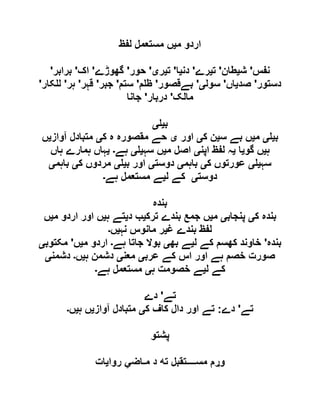 اردو میں مستعمل لفظ
نفس' شیطان' تیرے' دنیا' تیری' حور' گھوڑے' اک' برابر'
دستور' صدیاں' سولی' بےقصور' ظلم' ستم' جبر' قہر' ہر' للکار'
مالک' دربار' جانا
بیلی
بیلی میں بے سین کی اور ی حے مقصورہ ہ کی متبادل آوازیں
ہیں گویا یہ لفظ اپنی اصل میں سہیلی ہے۔ یہاں ہمارے ہاں
سہیلی عورتوں کی باہمی دوستی اور بیلی مردوں کی باہمی
دوستی کے لیے مستعمل ہے۔
بندہ
بندہ کی پنجابی میں جمع بندے ترکیب دیتے ہیں اور اردو میں
لفظ بندے غیر مانوس نہیں۔
بندہ' خاوند کھسم کے لیے بھی بولا جاتا ہے۔ اردو میں' مکتوبی
صورت خصم ہے اور اس کے عربی معنی دشمن ہیں۔ دشمنی
کے لیے خصومت ہی مستعمل ہے۔
تے' دے
تے' دے: تے اور دال کاف کی متبادل آوازیں ہیں۔
پشتو
ورم مســـتقبل ته د مـاضي روايات